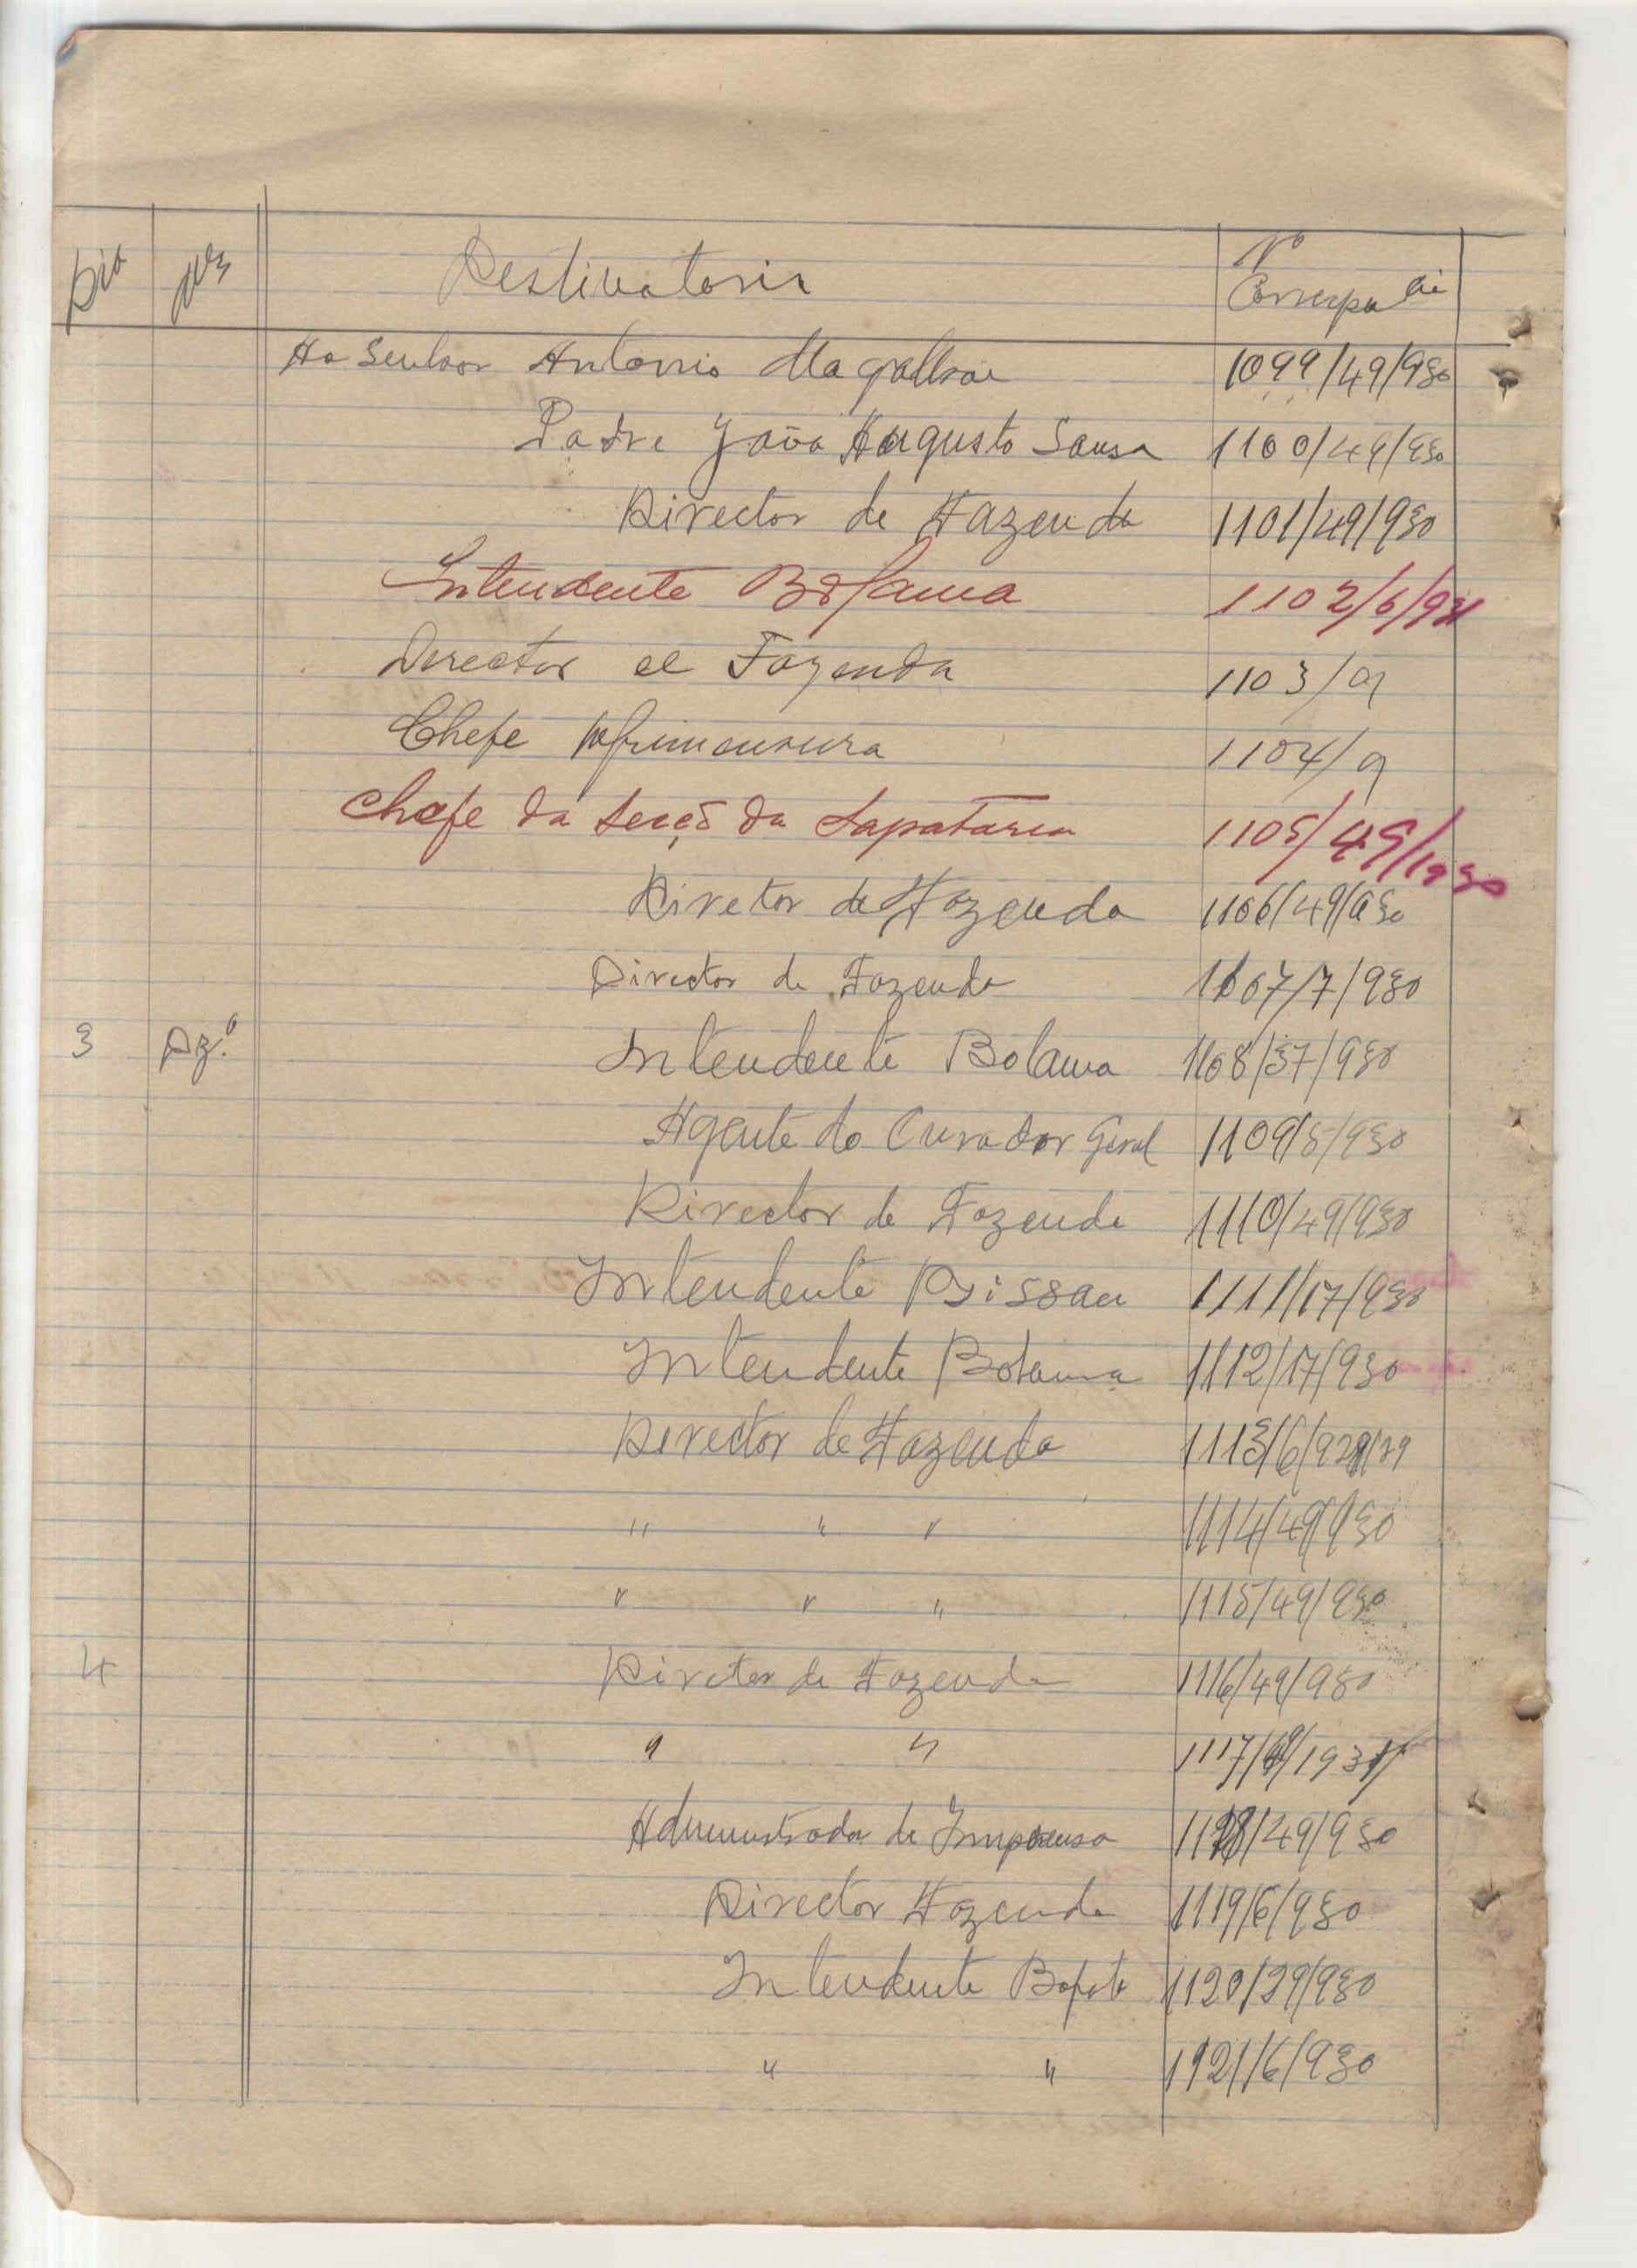 Dia Mês Destinatario Nº
Ao Senhor Antonio Magalhae 1099/49/930
Padre João Augusto Sousa 1100/49/930
Director de Fazenda 1101/49/930
Intendente Bolama 1102/6/931
Director de Fazenda 1103/9
Chefe Agrimensura 1104/9
Chefe da Secçõ da Sapataria 1105/49/1930
Diretor de Fazenda 1106/49/930
Director de Fazenda 1107/7/930
3 Dz.º Intendente Bolama 1108/37/930
Agente do Curador Geral 1109/8/930
Director de Fazenda 1110/49/930
Intendente Bissau 1111/17/930
Intendente Bolama 1112/17/930
Director de Fazenda 1113/6/928/29
" " " 1114/49/930
" " " 1115/49/930
4 Diretor de Fazenda 1116/49/930
" " 1117/49/1931
Administrador de Imprensa 1118/49/930
Director Fazenda 1119/6/930
Intendente Bafata 1120/29/930
" " 1121/6/930